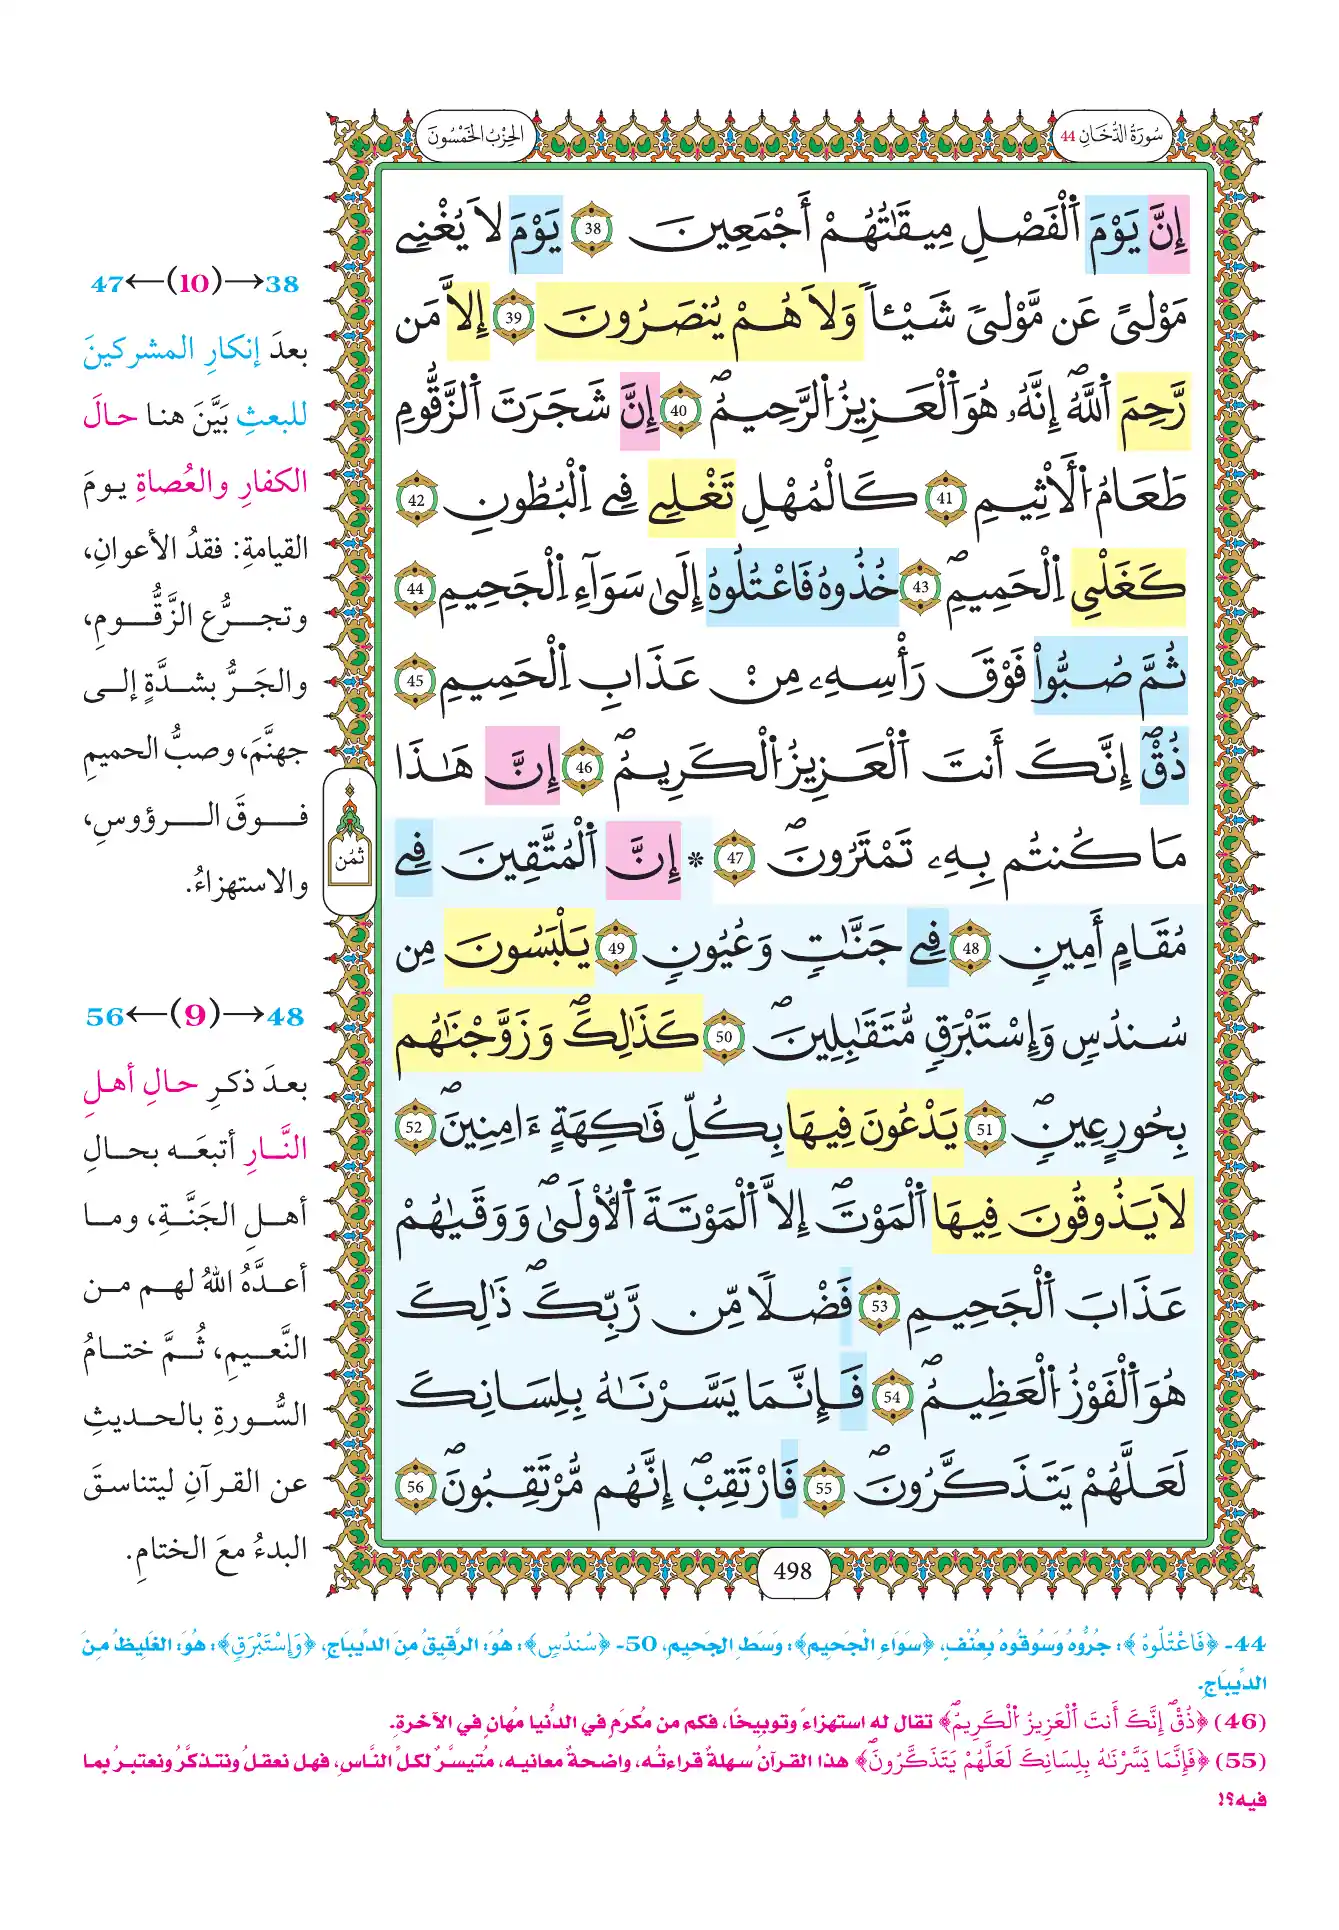 سُورَةُ الدُّخَانِ 44
الحِزْبُ الخَمْسُونَ
إِنَّ يَوْمَ اَ۬لْفَصْلِ مِيقَٰتُهُمْ أَجْمَعِينَ 38 يَوْمَ لَا يُغْنِے
مَوْلىً عَن مَّوْلىٗ شَيْـٔاٗ وَلَا هُمْ يُنصَرُونَ 39 إِلَّا مَن
رَّحِمَ اَ۬للَّهُۖ إِنَّهُۥ هُوَ اَ۬لْعَزِيزُ اُ۬لرَّحِيمُۖ 40 إِنَّ شَجَرَتَ اَ۬لزَّقُّومِ
طَعَامُ اُ۬لْأَثِيمِ 41 كَالْمُهْلِ تَغْلِے فِے اِ۬لْبُطُونِ 42
كَغَلْيِ اِ۬لْحَمِيمِۖ 43 خُذُوهُ فَاعْتُلُوهُ إِلَىٰ سَوَآءِ اِ۬لْجَحِيمِ 44
ثُمَّ صُبُّواْ فَوْقَ رَأْسِهِۦ مِنْ عَذَابِ اِ۬لْحَمِيمِ 45
ذُقِۖ اِنَّكَ أَنتَ اَ۬لْعَزِيزُ اُ۬لْكَرِيمُۖ 46 إِنَّ هَٰذَا
مَا كُنتُم بِهِۦ تَمْتَرُونَۖ 47 * إِنَّ اَ۬لْمُتَّقِينَ فِے
مُقَامٍ أَمِينٖ 48 فِے جَنَّٰتٖ وَعُيُونٖ 49 يَلْبَسُونَ مِن
سُندُسٖ وَإِسْتَبْرَقٖ مُّتَقَٰبِلِينَۖ 50 كَذَٰلِكَۖ وَزَوَّجْنَٰهُم
بِحُورٍ عِينٖۖ 51 يَدْعُونَ فِيهَا بِكُلِّ فَٰكِهَةٍ ءَامِنِينَۖ 52
لَا يَذُوقُونَ فِيهَا اَ۬لْمَوْتَۖ إِلَّا اَ۬لْمَوْتَةَ اَ۬لُاولَىٰۖ وَوَقَىٰهُمْ
عَذَابَ اَ۬لْجَحِيمِ 53 فَضْلاٗ مِّن رَّبِّكَۖ ذَٰلِكَ
هُوَ اَ۬لْفَوْزُ اُ۬لْعَظِيمُۖ 54 فَإِنَّمَا يَسَّرْنَٰهُ بِلِسَانِكَ
لَعَلَّهُمْ يَتَذَكَّرُونَۖ 55 فَارْتَقِبِۖ اِنَّهُم مُّرْتَقِبُونَۖ 56
ثمُن
498
38→(10)←47
بعدَ إنكارِ المشركينَ
للبعثِ بَيَّنَ هنا حالَ
الكفارِ والعُصاةِ يومَ
القيامةِ: فقدُ الأعوانِ،
وتجرُّع الزَّقُّومِ،
والجَرُّ بشدَّةٍ إلى
جهنَّمَ، وصبُّ الحميمِ
فوقَ الرؤوسِ،
والاستهزاءُ.
48→(9)←56
بعدَ ذكرِ حالِ أهلِ
النَّارِ أتبعَه بحالِ
أهلِ الجَنَّةِ، وما
أعدَّهُ اللهُ لهم من
النَّعيمِ، ثُمَّ ختامُ
السُّورةِ بالحديثِ
عن القرآنِ ليتناسقَ
البدءُ معَ الختامِ.
44- ﴿فَاعْتُلُوهُ﴾: جُرُّوهُ وَسُوقُوهُ بِعُنْفٍ، ﴿سَوَاءِ الْجَحِيمِ﴾: وَسَطِ الجَحِيمِ، 50- ﴿سُندُسٍ﴾: هُوَ: الرَّقِيقُ مِنَ الدِّيبَاجِ، ﴿وَإِسْتَبْرَقٍ﴾: هُوَ: الغَلِيظُ مِنَ
الدِّيبَاجِ.
(46) ﴿ذُقِۖ اِنَّكَ أَنتَ اَ۬لْعَزِيزُ اُ۬لْكَرِيمُۖ﴾ تقال له استهزاءً وتوبيخًا، فكم من مُكرَمٍ في الدُّنيا مُهانٍ في الآخرةِ.
(55) ﴿فَإِنَّمَا يَسَّرْنَٰهُ بِلِسَانِكَ لَعَلَّهُمْ يَتَذَكَّرُونَۖ﴾ هذا القرآنُ سهلةٌ قراءتُه، واضحةٌ معانيه، مُتيسَّرٌ لكلِّ النَّاسِ، فهل نعقلُ ونتذكَّرُ ونعتبرُ بما
فيه؟!